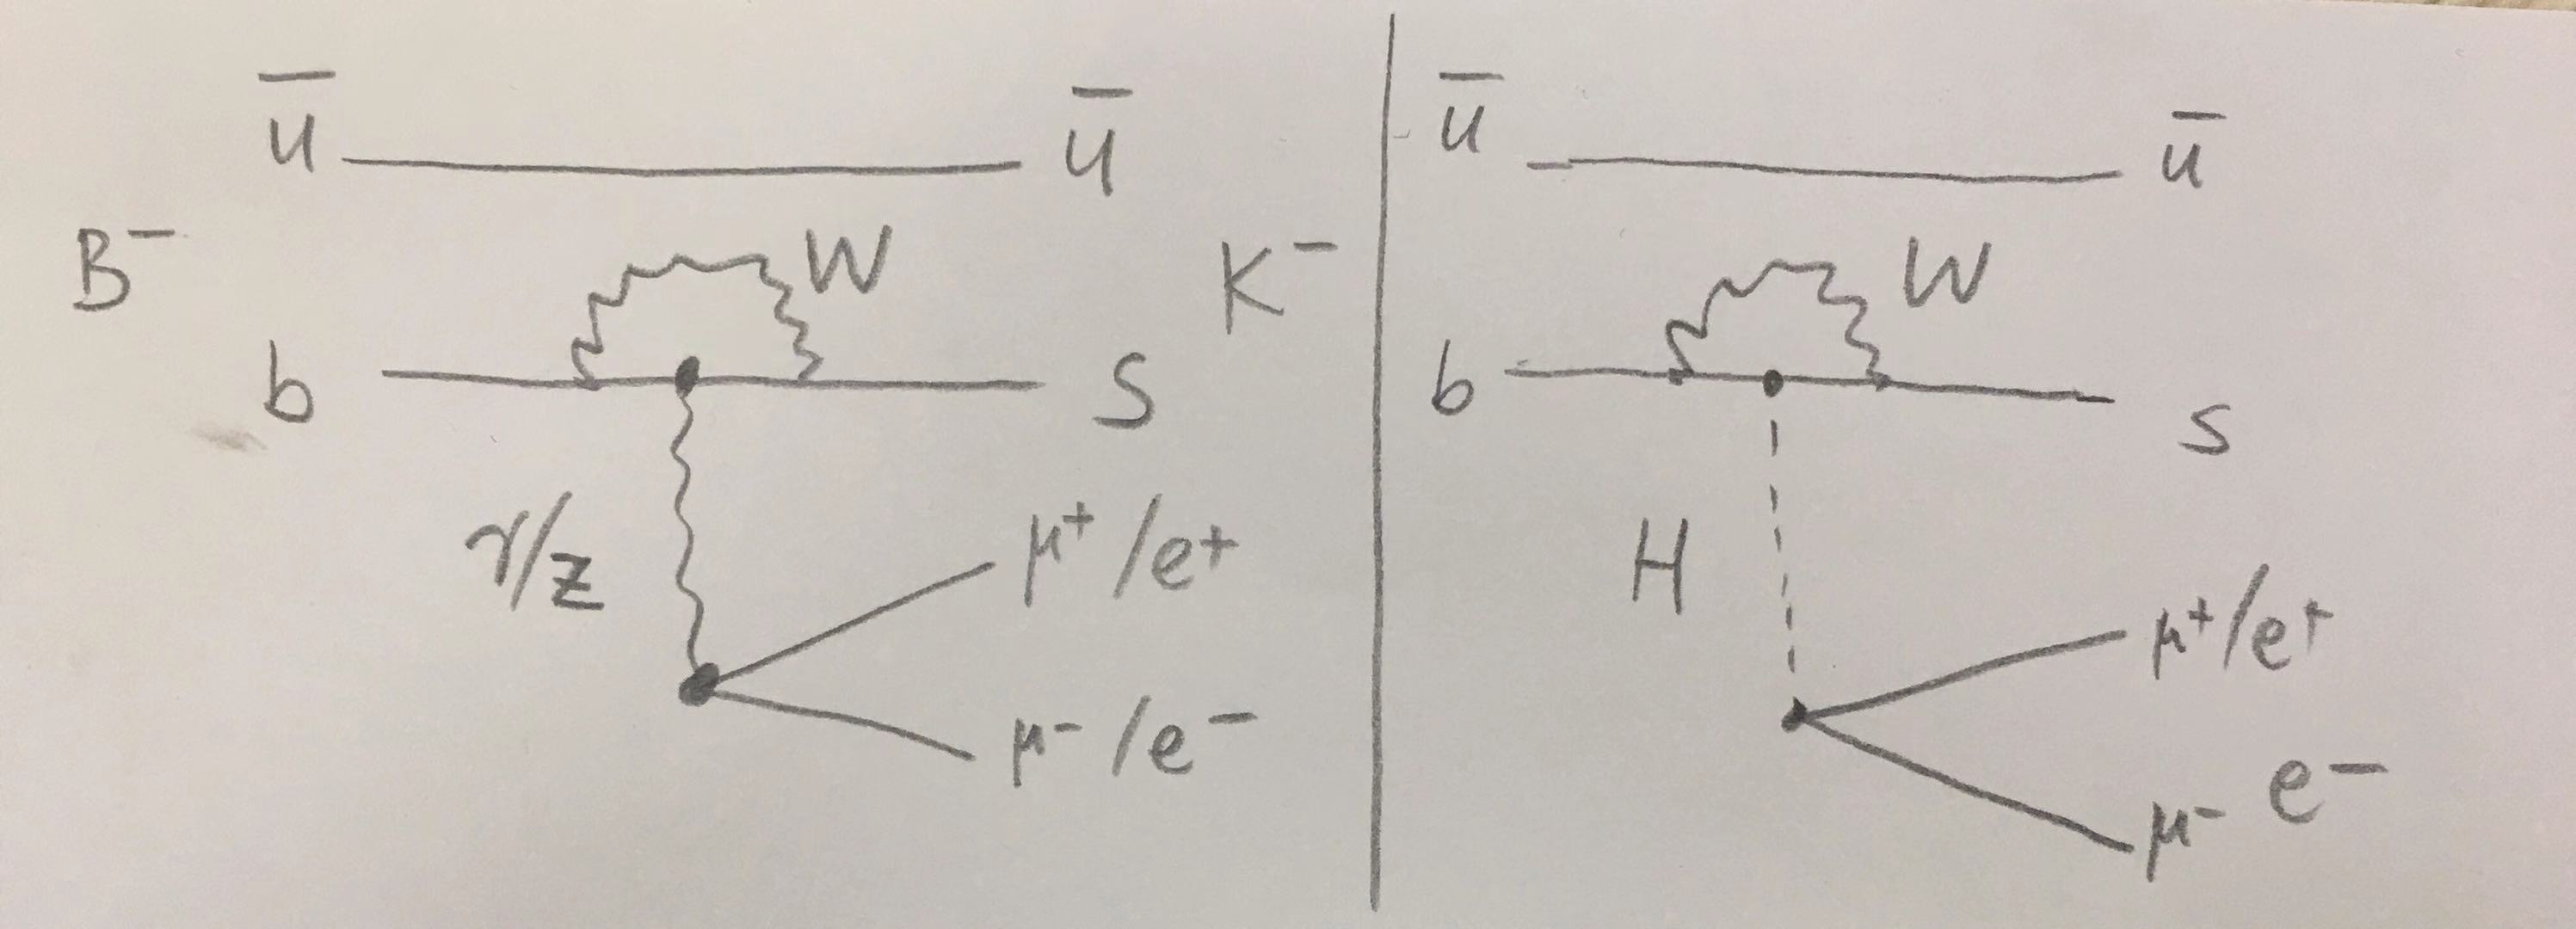 u̅ u̅
B⁻ W K⁻
b s
γ/z μ⁺/e⁺
μ⁻/e⁻
u̅ u̅
W
b s
H μ⁺/e⁺
μ⁻ e⁻